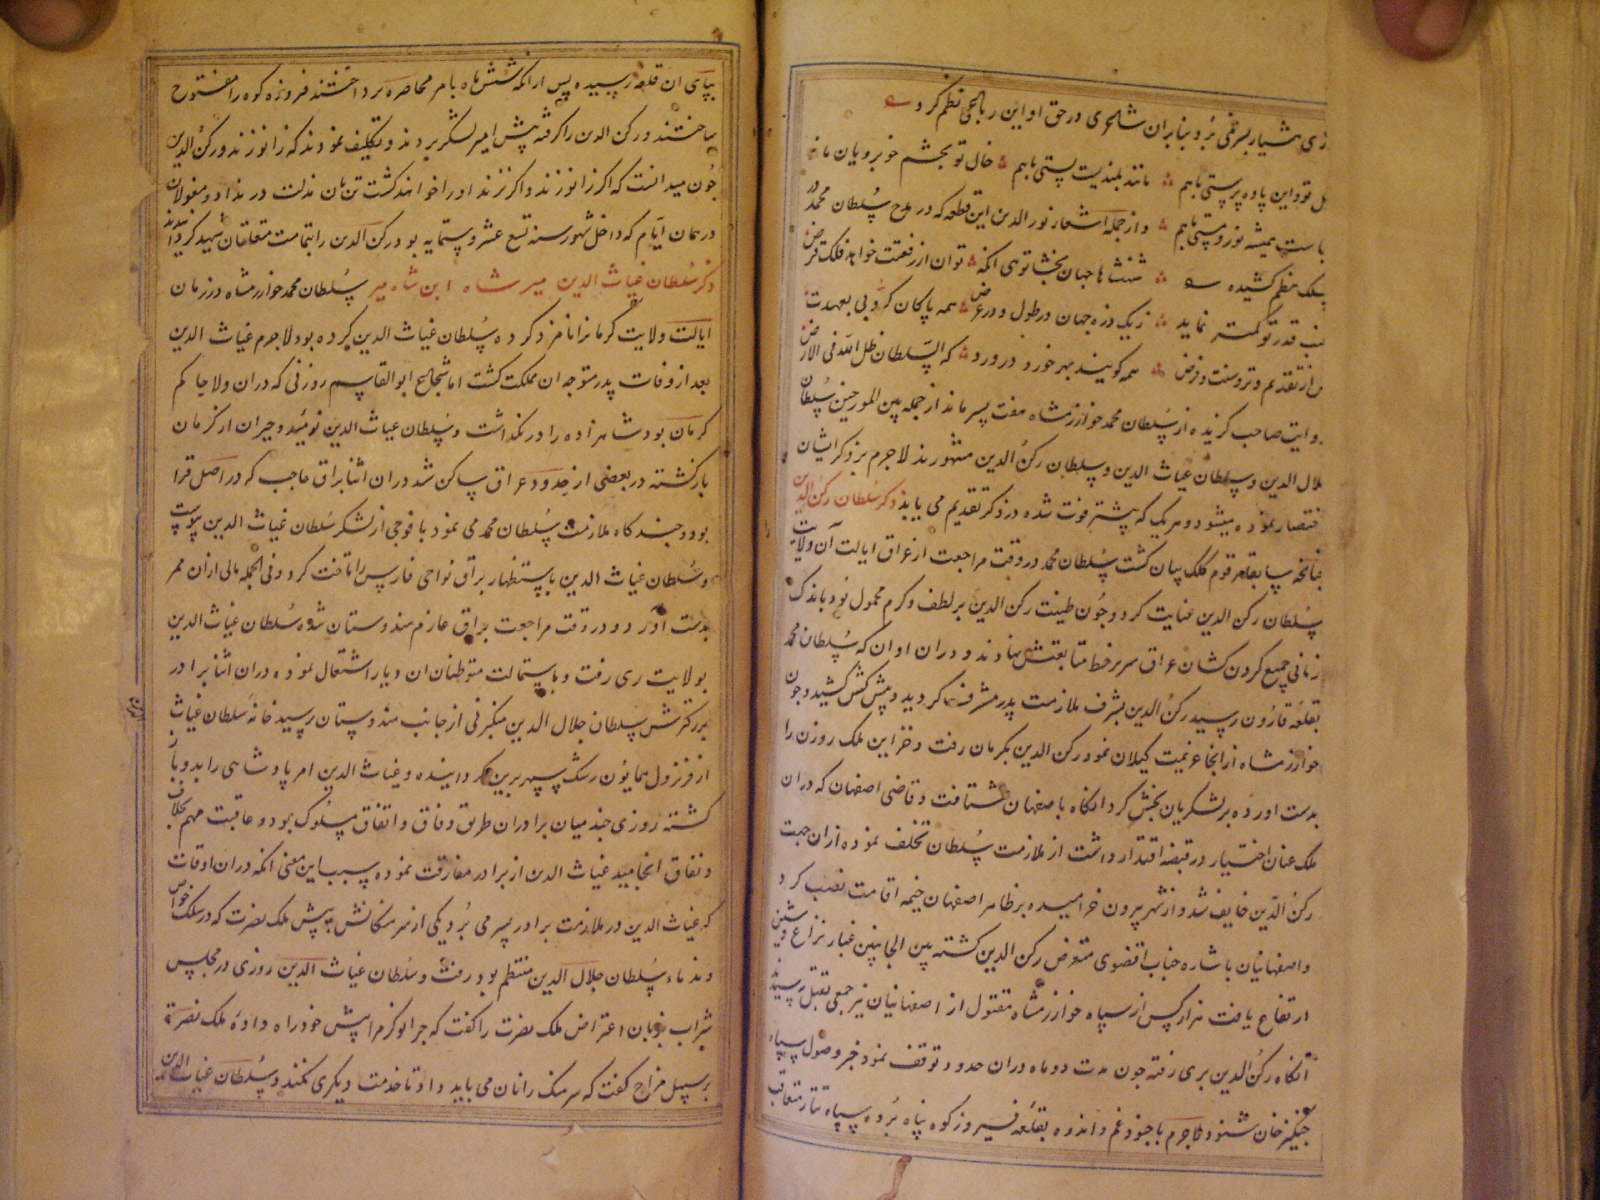 روزی هشیار بسر نمی برد و بنابران شاعری در حق او این رباعی نظم کرد
تو و این باده پرستی باهم مانند بلندیست پستی باهم حال تو بچشم خوبرویان ماند
است همیشه نور و مستی باهم و از جمله اشعار نور الدین این قطعه که در مدح سلطان محمد در
سلک نظم کشیده شهنشاها جهان بخشا توی آنکه توان از رفعتت خواهد فلک قرض
قدر تو کمتر نماید ز یک ذره جهان در طول و در عرض همه پاکان کروبی بعهدت
از تقدیم وتر و سنت و فرض همه گویند بهر خورد و درود که السلطان ظل الله فی الارض
روایت صاحب گزیده از سلطان محمد خوارزمشاه هفت پسر ماند از جمله بین المورخین سلطان
جلال الدین و سلطان غیاث الدین و سلطان رکن الدین مشهورند لاجرم بذکر ایشان
اختصار نموده میشود و هر یک که پیشتر فوت شده در ذکر تقدیم می یابد ذکر سلطان رکن الدین
چنانچه سابقا مرقوم کلک بیان گشت سلطان محمد در وقت مراجعت از عراق ایالت آن ولایت
بسلطان رکن الدین عنایت کرد و چون طینت رکن الدین بر لطف و کرم مجبول بود باندک
زمانی جمیع گردن کشان عراق سر بر خط متابعتش نهادند و دران اوان که سلطان محمد
بقلعه قارون رسید رکن الدین بشرف ملازمت پدر مشرف گردید و پیش کش کشید و چون
خوارزمشاه از انجا عزیمت گیلان نمود رکن الدین بکرمان رفت و خزاین ملک روزن را
بدست اورده بر لشکریان بخش کرد انگاه باصفهان شتافت و قاضی اصفهان که دران
ملک عنان اختیار در قبضه اقتدار داشت از ملازمت سلطان تخلف نموده ازان جهت
رکن الدین خایف شد و از شهر بیرون خرامیده بر ظاهر اصفهان خیمه اقامت نصب کرد
و اصفهانیان باشاره جناب اقضوی متعرض رکن الدین گشته بین الجانبین غبار نزاع و شین
ارتفاع یافت هزار کس از سپاه خوارزمشاه مقتول از اصفهانیان نیز جمعی بقتل رسیدند
انگاه رکن الدین بری رفته چون مدت دو ماه دران حدود توقف نمود خبر وصول سپاه
چنگیز خان شنود لاجرم با جنود غم و اندوه بقلعه فیروزکوه پناه برده سپاه تتار متعاقب
بپای ان قلعه رسیده پس از انکه شش ماه بامر محاصره پرداختند فیروزه کوه را مفتوح
ساختند و رکن الدین را گرفته پیش امیر لشکر بردند و تکلیف نمودند که زانو زند و رکن الدین
چون میدانست که اگر زانو زند و اگر نزند او را خواهند کشت تن بان مذلت در نداد و مغولان
در همان ایام که داخل شهور سنه تسع عشر و ستمایه بود رکن الدین را بتمامت متعلقان شهید گردانیدند
ذکر سلطان غیاث الدین میر شاه ابن شاه میر سلطان محمد خوارزمشاه در زمان
ایالت ولایت کرمان را نامزد کرده سلطان غیاث الدین کرده بود لاجرم غیاث الدین
بعد از وفات پدر متوجه ان مملکت گشت اما شجاع ابو القاسم روزنی که دران ولا حاکم
کرمان بود شاهزاده را در نگذاشت و سلطان غیاث الدین نومید و حیران از کرمان
بازگشته در بعضی از حدود عراق ساکن شد دران اثنا براق حاجب که در اصل قرا
بود و چند گاه ملازمت سلطان محمد می نمود با فوجی از لشکر سلطان غیاث الدین پیوست
و سلطان غیاث الدین باستظهار براق نواحی فارس را تاخت کرد و فی الجمله مالی ازان ممر
بدست آورد و در وقت مراجعت براق عازم هندوستان شده سلطان غیاث الدین
بولایت ری رفت و باستمالت متوطنان ان دیار اشتغال نموده دران اثنا برادر
بزرگترش سلطان جلال الدین منکبرنی از جانب هندوستان رسید خانه سلطان غیاث
از فر نزول همایون رشک سپهر برین گردانیده و غیاث الدین امر پادشاهی را بدو باز
گشته روزی چند میان برادران طریق وفاق و اتفاق مسلوک بود و عاقبت مهم بخلاف
و نفاق انجامید غیاث الدین از برادر مفارقت نموده سبب این معنی انکه دران اوقات
که غیاث الدین در ملازمت برادر بسر می برد یکی از سرهنگانش پیش ملک نصرت که در سلک خواص
و ندماء سلطان جلال الدین منتظم بود رفت و سلطان غیاث الدین روزی در مجلس
شراب بزبان اعتراض ملک نصرت را گفت که چرا نوکرم را پیش خود راه دادهٔ ملک نصرة
بر سبیل مزاح گفت که سرهنگ را نان می باید داد تا خدمت دیگری نکند و سلطان غیاث الدین